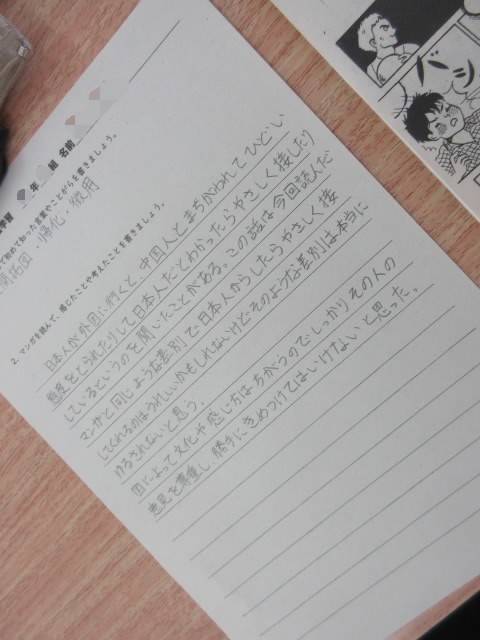 学習 年 組 名前
で初めて知った言葉やことがらを書きましょう。
開拓団・帰化・徴用
2. マンガを読んで、感じたことや考えたことを書きましょう。
日本人が外国に行くと、中国人とまちがわれてひどい
態度をとられたりして日本人だとわかったらやさしく接したり
しているというのを聞いたことがある。この話は今回読んだ
マンガと同じような差別で日本人からしたらやさしく接
してくれるのはうれしいかもしれないけど、そのような差別は本当に
ゆるされないと思う。
国によって文化や感じ方はちがうのでしっかりその人の
意見を尊重し、勝手にきめつけてはいけないと思った。
バシ